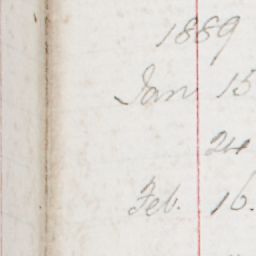 1889
Jan 15
24
Feb. 16.